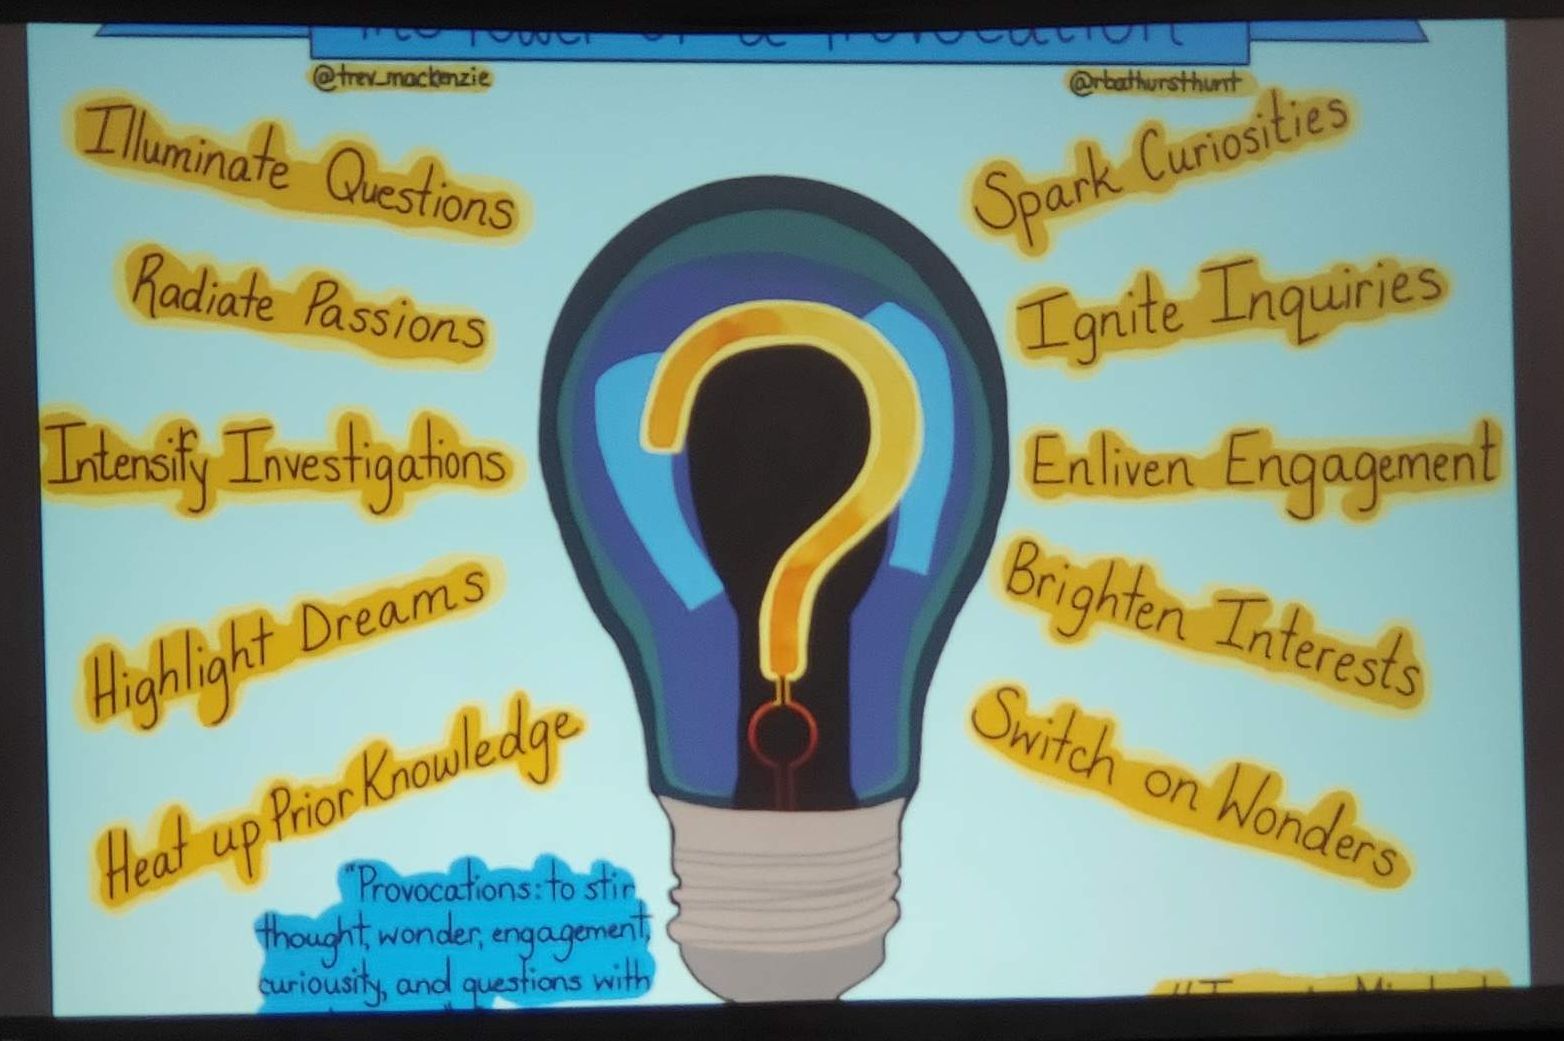 The Power of a Provocation
@trev_mackenzie
@rbathursthunt
Illuminate Questions
Radiate Passions
Intensify Investigations
Highlight Dreams
Heat up Prior Knowledge
Spark Curiosities
Ignite Inquiries
Enliven Engagement
Brighten Interests
Switch on Wonders
"Provocations: to stir
thought, wonder, engagement,
curiousity, and questions with